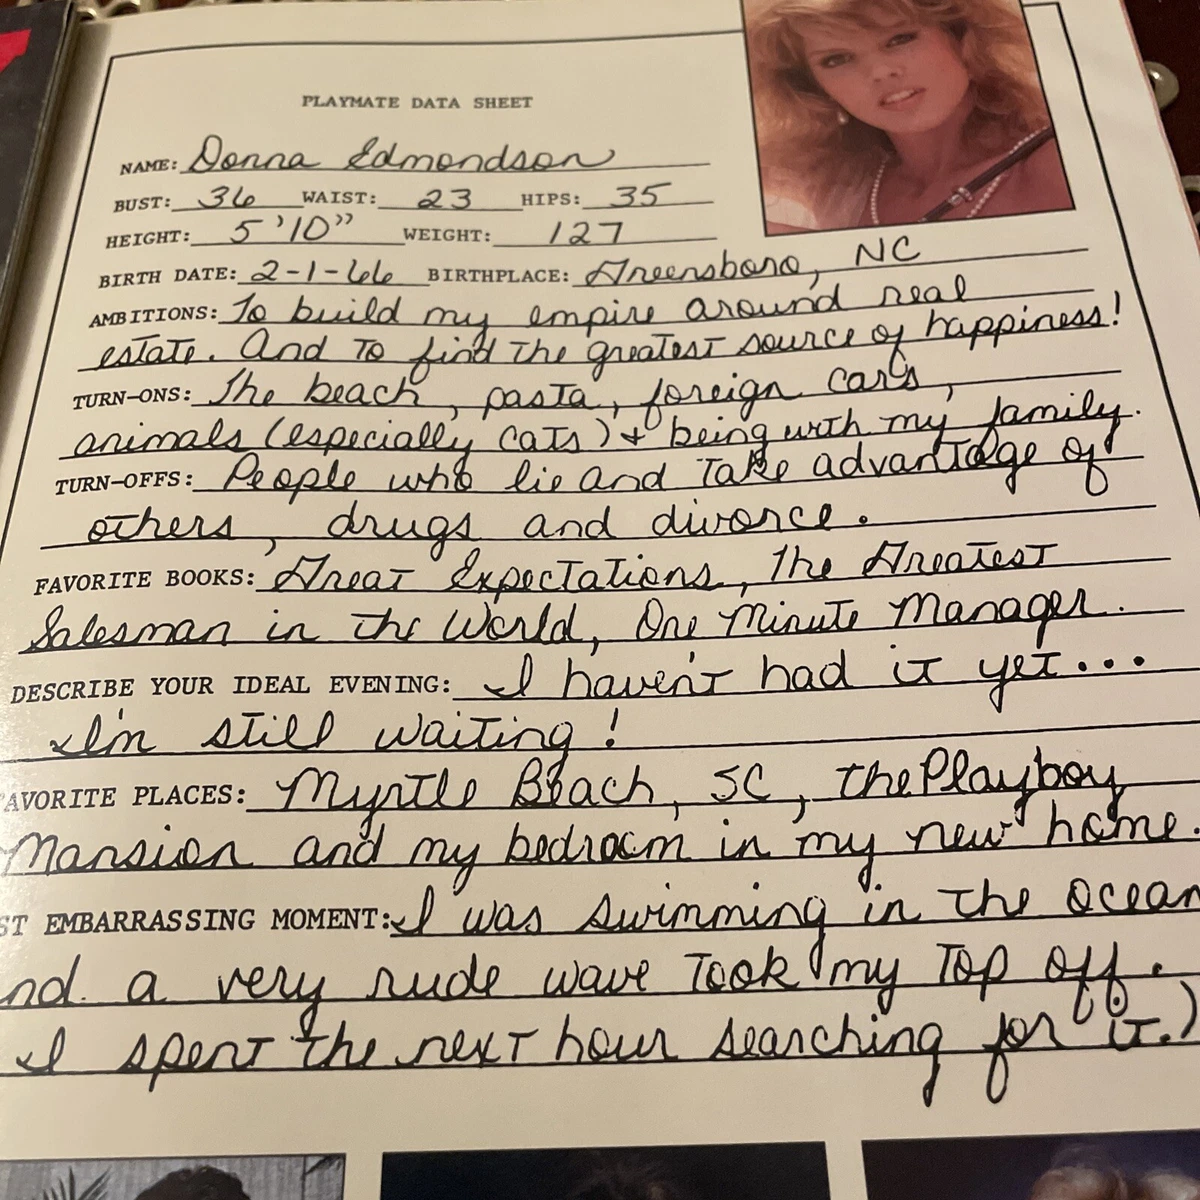 PLAYMATE DATA SHEET
NAME: Donna Edmondson
BUST: 36 WAIST: 23 HIPS: 35
HEIGHT: 5'10" WEIGHT: 127
BIRTH DATE: 2-1-66 BIRTHPLACE: Greensboro, NC
AMBITIONS: To build my empire around real
estate. And to find the greatest source of happiness!
TURN-ONS: The beach, pasta, foreign cars,
animals (especially cats) + being with my family.
TURN-OFFS: People who lie and take advantage of
others, drugs and divorce.
FAVORITE BOOKS: Great Expectations, The Greatest
Salesman in the World, One Minute Manager.
DESCRIBE YOUR IDEAL EVENING: I haven't had it yet...
I'm still waiting!
AVORITE PLACES: Myrtle Beach, SC, the Playboy
Mansion and my bedroom in my new home.
ST EMBARRASSING MOMENT: I was swimming in the ocean
nd a very rude wave took my top off.
I spent the next hour searching for it.)